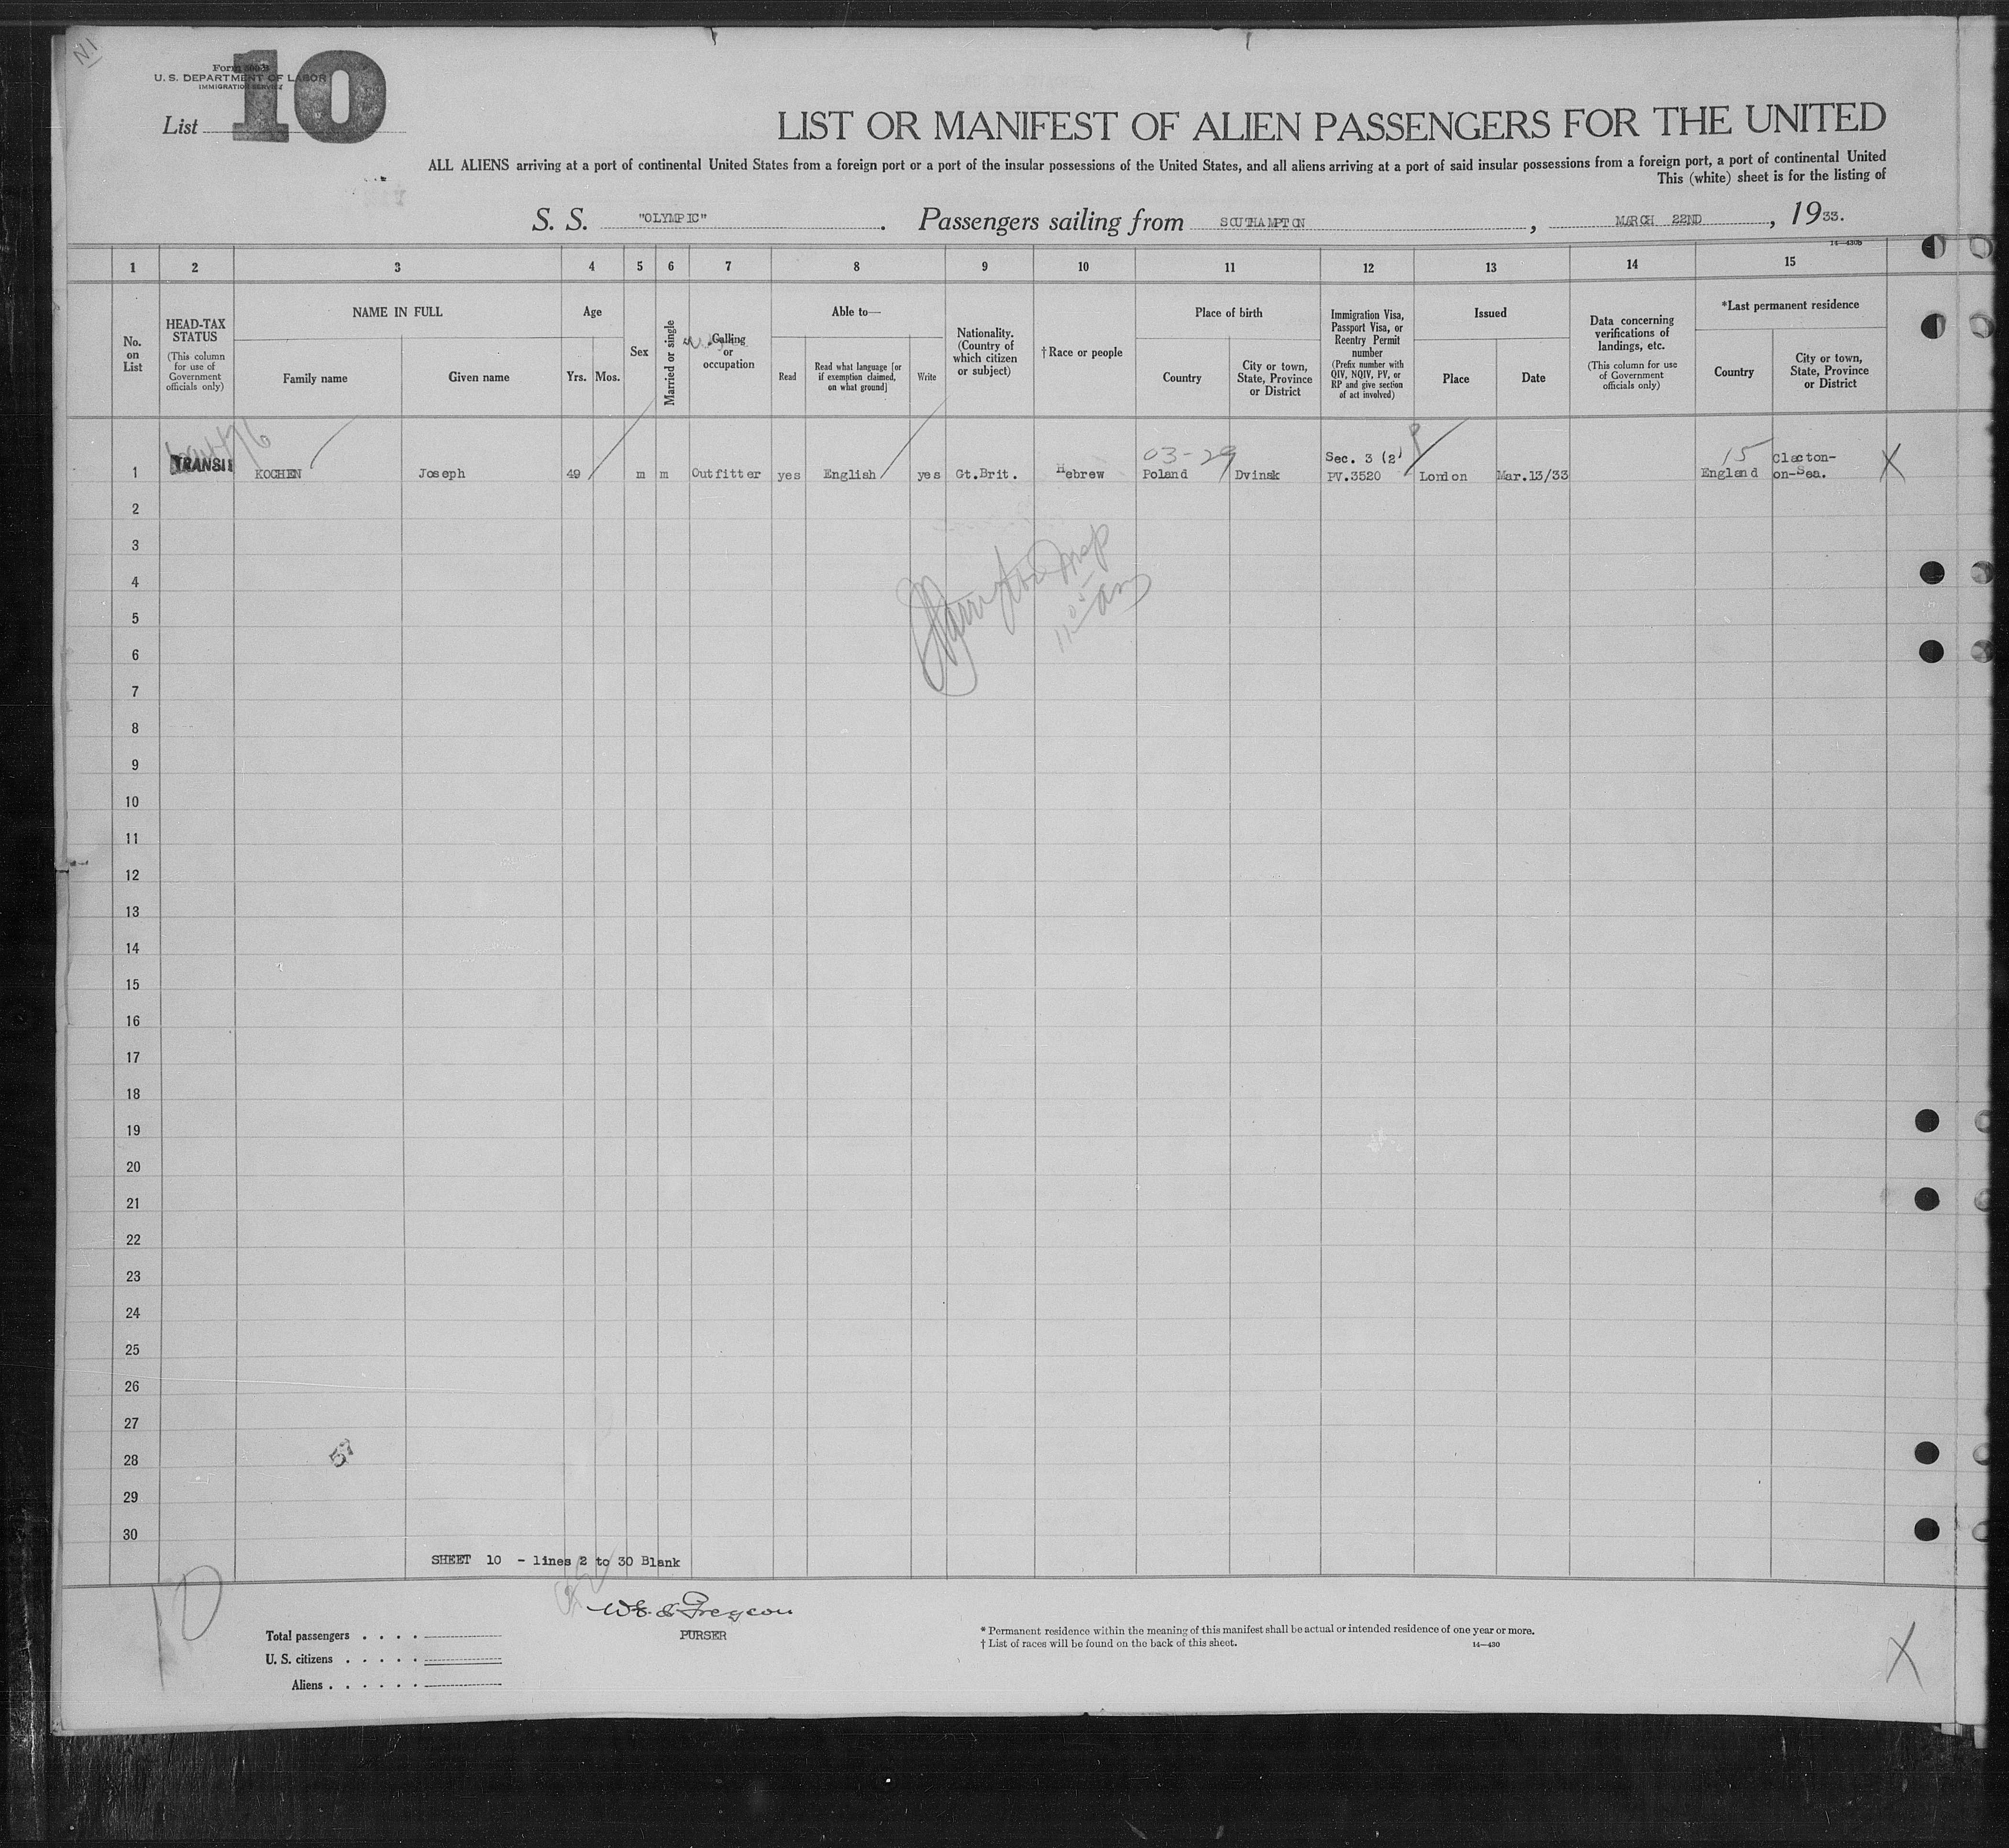 N.1
Form
U. S. DEPARTMENT OF LABOR
IMMIGRATION SERVICE
List 10
LIST OR MANIFEST OF ALIEN PASSENGERS FOR THE UNITED
ALL ALIENS arriving at a port of continental United States from a foreign port or a port of the insular possessions of the United States, and all aliens arriving at a port of said insular possessions from a foreign port, a port of continental United
This (white) sheet is for the listing of
S. S. "OLYMPIC". Passengers sailing from SOUTHAMPTON, MARCH 22ND, 1933.
14—430b
1 2 3 4 5 6 7 8 9 10 11 12 13 14 15
No. on List
HEAD-TAX STATUS
(This column for use of Government officials only)
NAME IN FULL
Family name
Given name
Age
Yrs. Mos.
Sex
Married or single
Calling or occupation
Able to—
Read
Read what language [or if exemption claimed, on what ground]
Write
Nationality. (Country of which citizen or subject)
†Race or people
Place of birth
Country
City or town, State, Province or District
Immigration Visa, Passport Visa, or Reentry Permit number
(Prefix number with QIV, NQIV, PV, or RP and give section of act involved)
Issued
Place
Date
Data concerning verifications of landings, etc.
(This column for use of Government officials only)
*Last permanent residence
Country
City or town, State, Province or District
03-29 Sec. 3 (2) 15 Clacton-
1 TRANSIT KOCHEN Joseph 49 m m Outfitter yes English yes Gt.Brit. Hebrew Poland Dvinsk PV.3520 London Mar.13/33 England on-Sea. X
2
3
4
5
6
7
8
9
10
11
12
13
14
15
16
17
18
19
20
21
22
23
24
25
26
27
28
29
30
11 00 am
57
SHEET 10 - lines 2 to 30 Blank
10
PURSER
Total passengers . . . .
U. S. citizens . . . . .
Aliens . . . . . .
* Permanent residence within the meaning of this manifest shall be actual or intended residence of one year or more.
† List of races will be found on the back of this sheet.
14—430
X